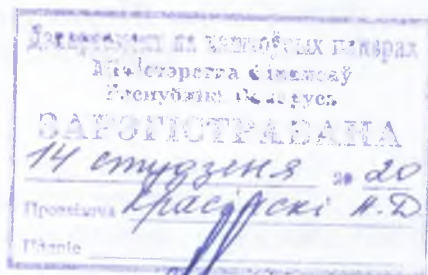 Дэпартамент па каштоўных паперах
Міністэрства фінансаў
Рэспублікі Беларусь
ЗАРЭГІСТРАВАНА
14 студзеня 20 20
Прозвішча
Подпіс